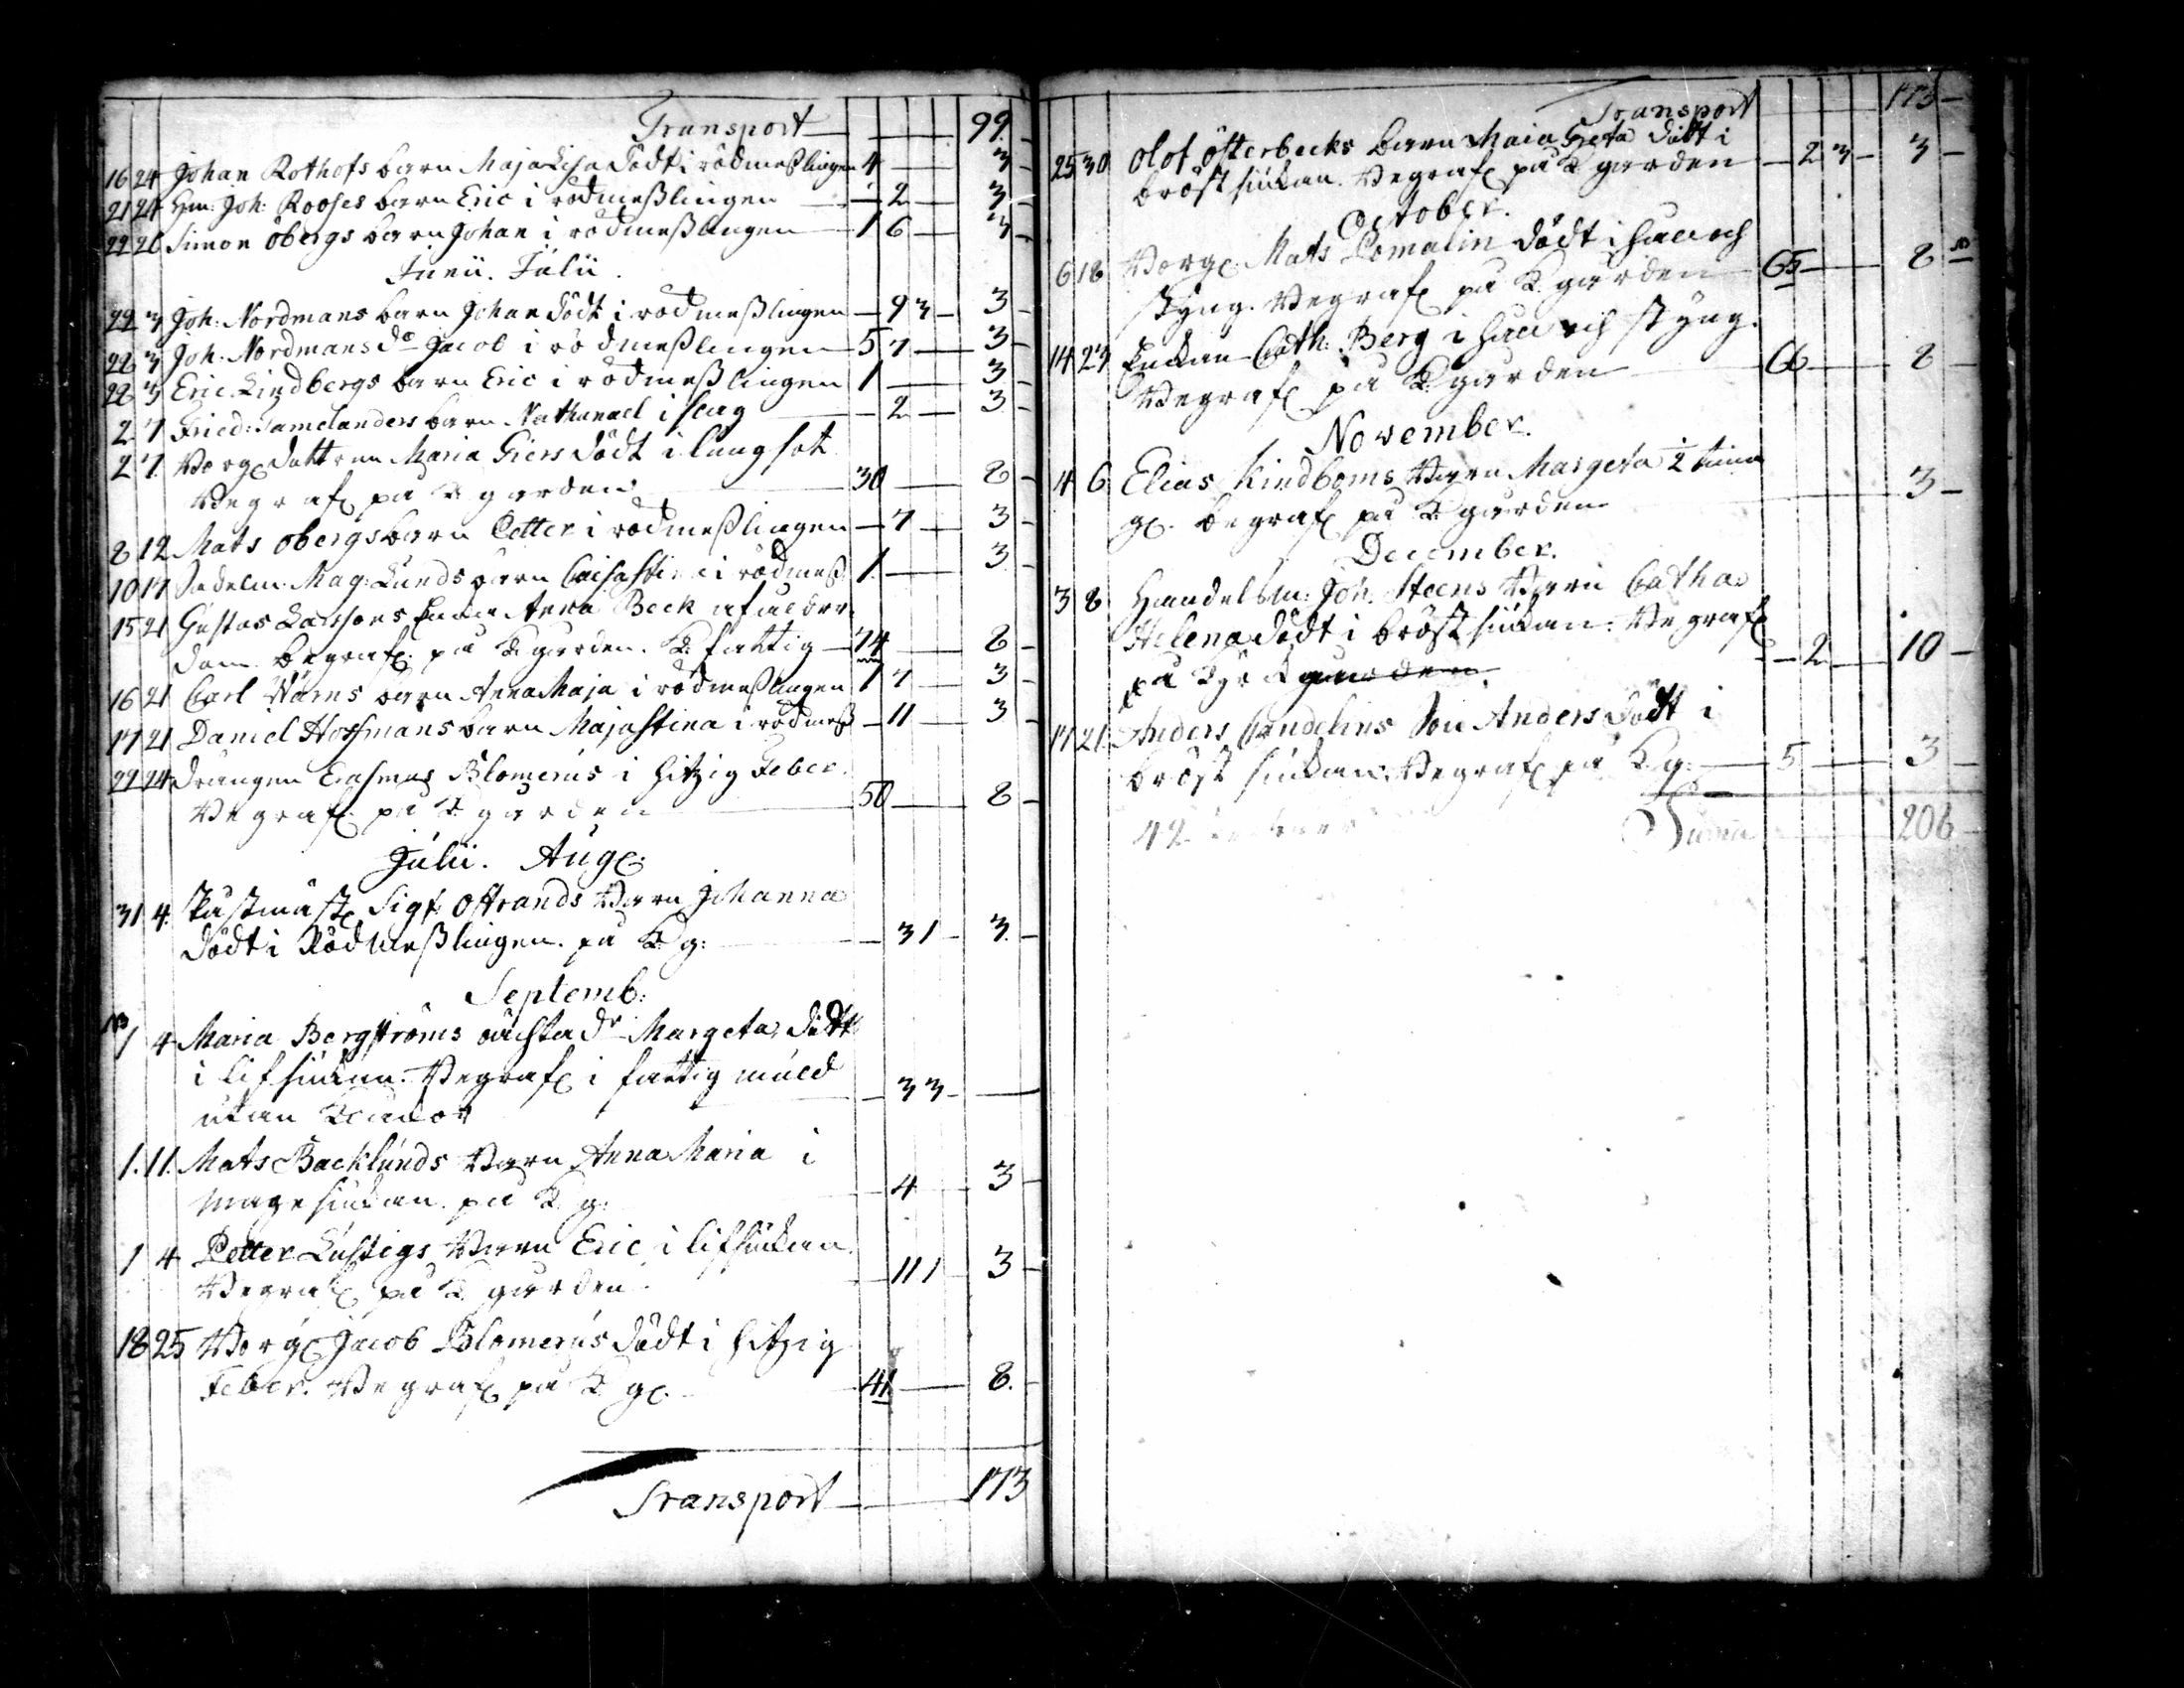 Transport — 99. —
16 24 Johan Rothofs barn Maja Lisa Dödt i rödmeßlingen 4 — 3 —
21 24 Hm: Joh: Rooses barn Eric i rödmeßlingen — 2 — 3 —
22 26 Simon Öbergs barn Johan i rödmeßlingen — 1 6 — 3 —
Junii. Julii.
29 3 Joh: Nordmans barn Johan Dödt i rödmeßlingen — 9 3 — 3 —
28 3 Joh: Nordmans do Jacob i rödmeßlingen — 5 7 — 3 —
28 3 Eric Lindbergs barn Eric i rödmeßlingen 1 — 3 —
2 7 Fried: Samelanders barn Nathanael i slag — 2 — 3 —
2 7. Borg: dottren Maria Giers Dödt i lungsot
Begraf: på K: gården 30 — 8 —
8 12 Mats Öbergs barn Petter i rödmeßlingen — 7 — 3 —
10 17 Sadelm: Mag: Lunds barn Caisa Stina i rödmeß: 1. — 3 —
15 21 Gustas Larssons Enka Anna Beck af ålder
dom. begraf: på K: gården. K: fattig — 74 — 8 —
16 21 Carl Warns barn Anna Maja i rödmeßlingen 1 7 — 3 —
17 21 Daniel Hoffmans barn Maja Stina i rödmeß — 11 — 3 —
22 24 Drängen Erasmus Blomerus i hitzig Feber.
Begraf: på K: gården 50 — 8 —
Julii. Aug:
31 4. Påstmäst: Sigf: Ostrands Barn Johanna
Dödt i Rödmeßlingen. på K: g: — 3 1 — 3. —
Septemb:
NB 1 4 Maria Bergströms oächta dr Margeta, Dödt
i lifsiukan. Begraf: i fattig muld
utan Kläckor — 3 3 —
1. 11. Mats Backlunds Barn Anna Maria i
Magesiukan. på K: g: — 4 — 3 —
1 4 Petter Lustigs Barn Eric i lifsiukan.
Begraf: på K: gården — 11 1 — 3 —
18 25 Borg: Jacob Blomerus Dödt i hitzig
Feber. Begraf: på K: g: 41 — 8. —
Transport — 173
Transport 173 —
25 30 Olof Österbecks barn Maia Greta Dödt i
bröstsiukan. Begraf: på K: gården — 2 3 — 3 —
October.
6 18 Borg: Mats Pomalin Dödt i håll och
styng. Begraf: på K: gården — 65 — 8 —
14 27 Enkan Cath: Berg i håll och styng.
Begraf: på K: gården — 66 — 8 —
November.
4 6 Elias Kindboms Barn Margeta 1/2 tima
g: begraf: på K: gården — 3 —
December.
3 8 Handelsm: Joh. Steens Barn Catha
Helena Dödt i bröstsiukan. Begraf:
på Kyrkgården. — 2 — 10 —
17 21. Anders Candelins Son Anders Dödt i
bröst siukan. Begraf: på K: g: — 5 — 3 —
42 Summa 206 —